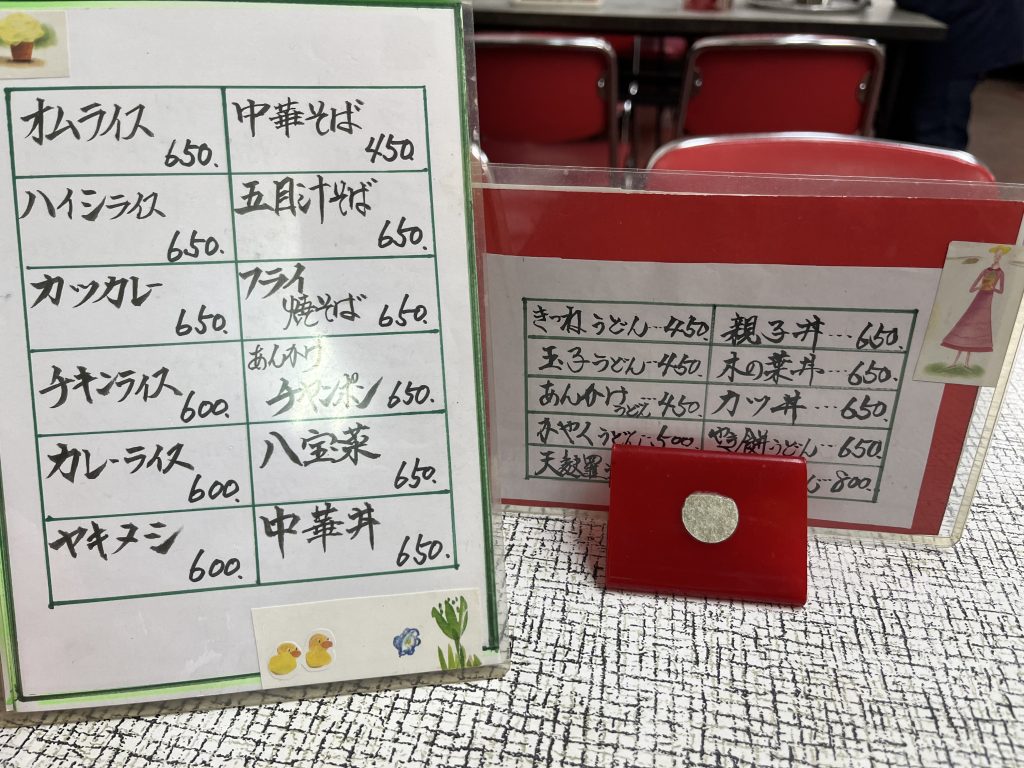 オムライス
650.
ハイシライス
650.
カツカレー
650.
チキンライス
600.
カレーライス
600.
ヤキメシ
600.
中華そば
450.
五目汁そば
650.
フライ
焼そば 650.
あんかけ
チャンポン 650.
八宝菜
650.
中華丼
650.
きつねうどん…450
玉子うどん…450.
あんかけうどん 450.
かやくうどん…500.
天麩羅
親子丼…650.
木の葉丼…650.
カツ丼…650.
餅うどん…650.
800.